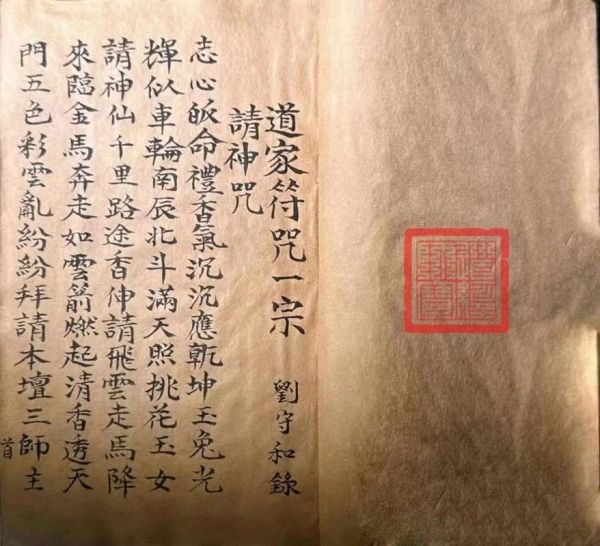 道家符咒一宗 劉守和錄
請神咒
志心皈命禮香氣沉沉應乾坤玉兔光
輝似車輪南辰北斗滿天照挑花玉女
請神仙千里路途香伸請飛雲走馬降
來臨金馬奔走如雲箭燃起清香透天
門五色彩雲亂紛紛拜請本壇三師主
首